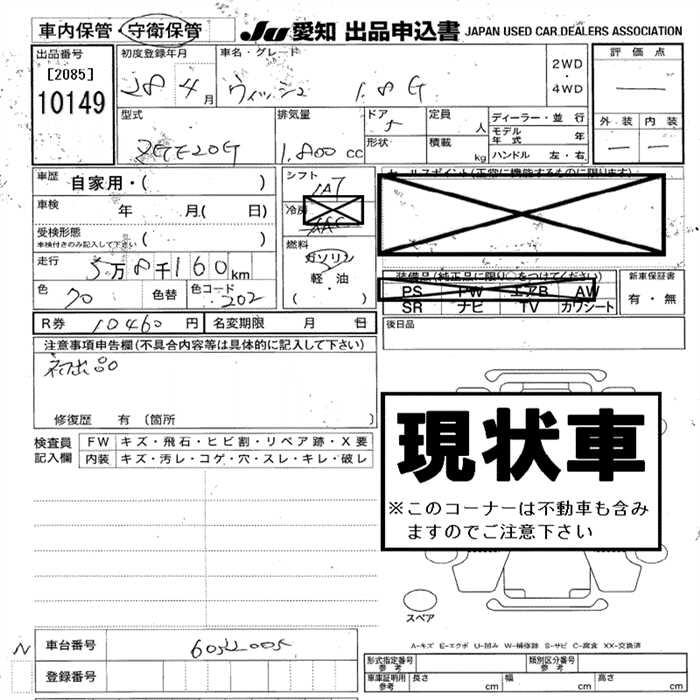 車内保管・守衛保管
JU 愛知 出品申込書 JAPAN USED CAR DEALERS ASSOCIATION
出品番号 初度登録年月 車名・グレード 評価点
[2085] 10149
28 4月 ウィッシュ 1.8G 2WD・4WD
型式 排気量 ドア 定員 人 ディーラー・並行 外装 内装
モデル年式 年
ZGE20G 1.800cc 形状 積載 kg ハンドル 左・右
車歴 自家用・( ) シフト セールスポイント(正常に機能するものに限ります)
IAT
車検 年 月( 日) 冷房
AAC
受検形態 ( )
車検付きのみ記入して下さい
燃料
走行 5万8千160km ガソリン 装備品(純正品に限り○をつけてください) 新車保証書
軽・油
( )
PS PW エアB AW 有・無
色 70 色替 色コード 202 SR ナビ TV カワシート
R券 10460円 名変期限 月 日 後日品
注意事項申告欄(不具合内容等は具体的に記入して下さい)
初出品
修復歴 有 〔箇所 〕
現状車
※このコーナーは不動車も含み
ますのでご注意下さい
検査員記入欄 FW キズ・飛石・ヒビ割・リペア跡・X要
内装 キズ・汚レ・コゲ・穴・スレ・キレ・破レ
スペア
A-キズ E-エクボ U-凹み W-補修跡 S-サビ C-腐食 XX-交換済
N 車台番号 6052005
登録番号
形式指定番号 参考 類別区分番号 参考
車庫証明用参考 長さ cm 幅 cm 高さ cm